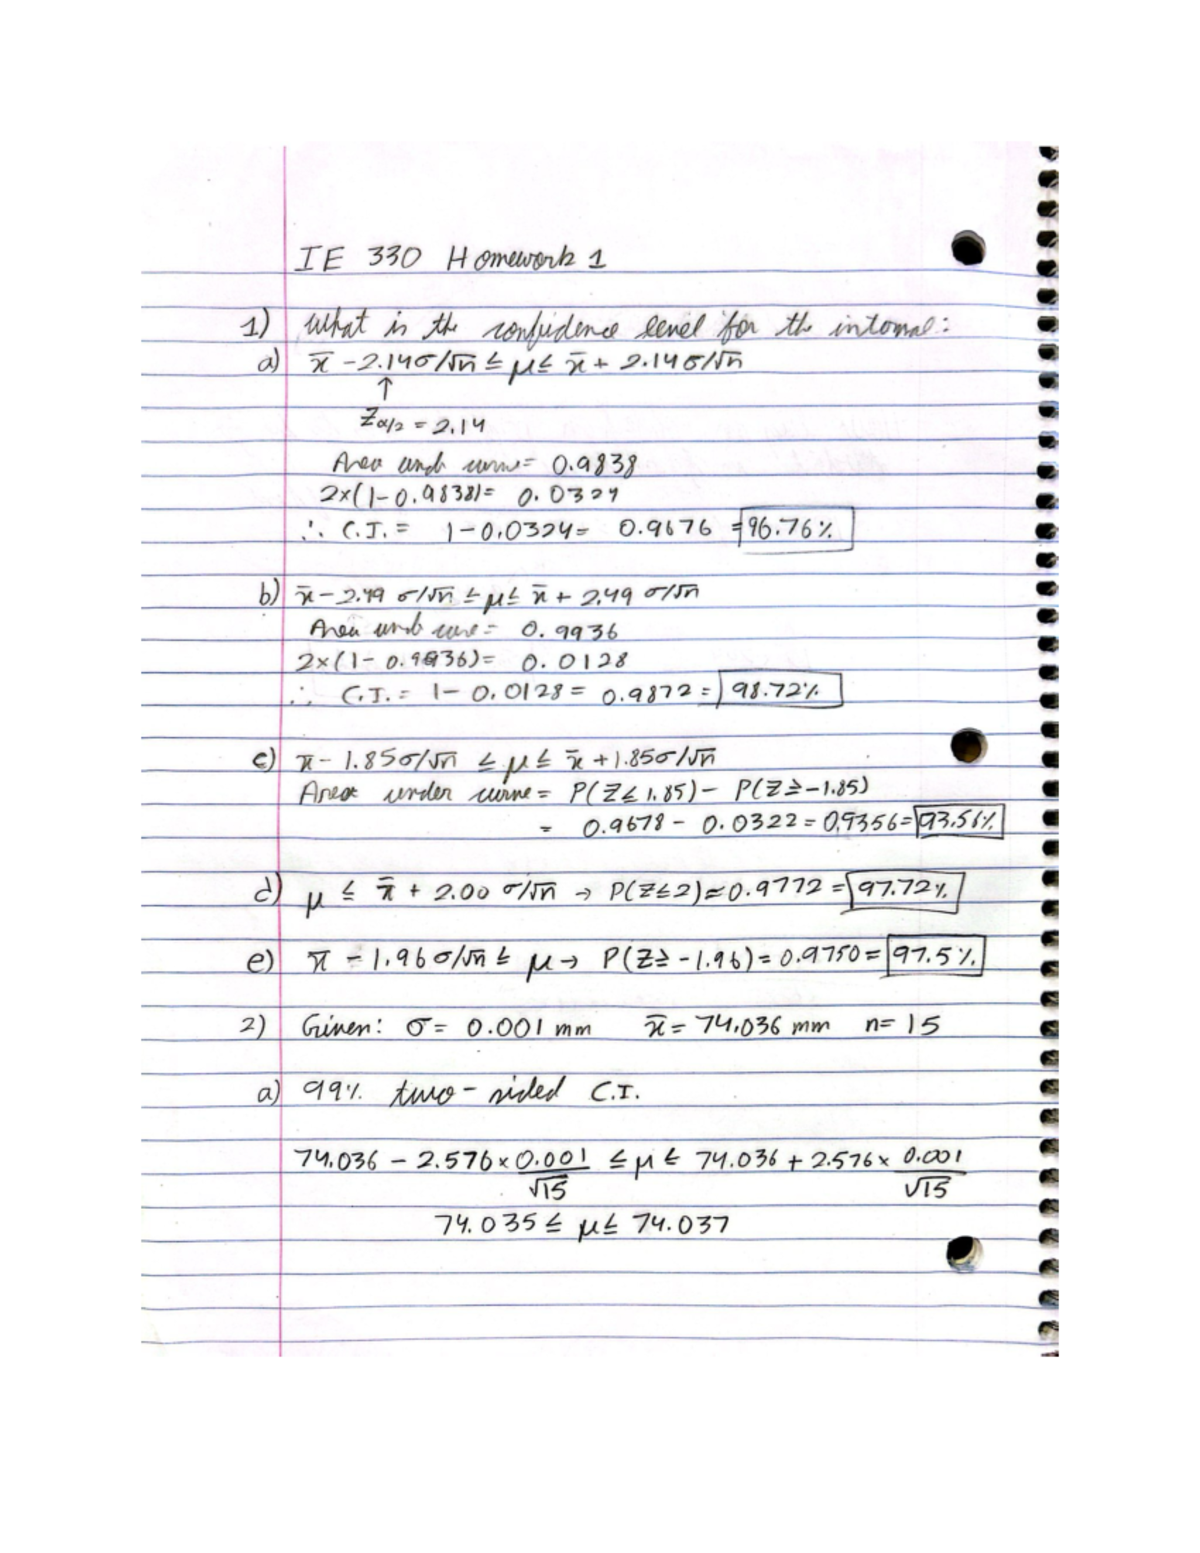 IE 330 Homework 1
1) What is the confidence level for the interval:
a) x̄ - 2.14σ/√n ≤ μ ≤ x̄ + 2.14σ/√n
↑
Zα/2 = 2.14
Area und curve = 0.9838
2×(1-0.9838) = 0.0324
∴ C.I. = 1-0.0324 = 0.9676 = 96.76%
b) x̄ - 2.49 σ/√n ≤ μ ≤ x̄ + 2.49 σ/√n
Area und curve = 0.9936
2×(1-0.9936) = 0.0128
∴ C.I. = 1-0.0128 = 0.9872 = 98.72%
c) x̄ - 1.85σ/√n ≤ μ ≤ x̄ + 1.85σ/√n
Area under curve = P(Z≤1.85) - P(Z≥-1.85)
= 0.9678 - 0.0322 = 0.9356 = 93.56%
d) μ ≤ x̄ + 2.00 σ/√n → P(Z≤2) = 0.9772 = 97.72%
e) x̄ - 1.96σ/√n ≤ μ → P(Z≥-1.96) = 0.9750 = 97.5%
2) Given: σ = 0.001 mm x̄ = 74.036 mm n = 15
a) 99% two-sided C.I.
74.036 - 2.576 × 0.001/√15 ≤ μ ≤ 74.036 + 2.576 × 0.001/√15
74.035 ≤ μ ≤ 74.037